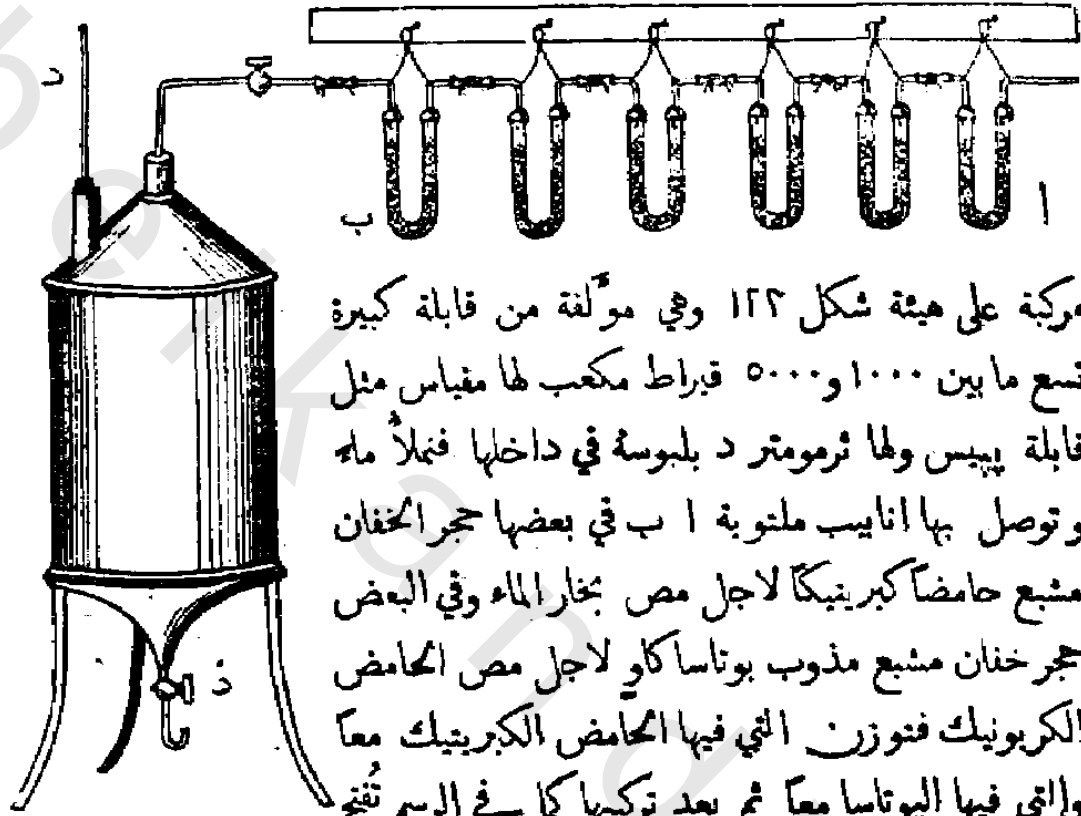 د
ب
ا
مركبة على هيئة شكل ١٢٢ وهي موَّلفة من قابلة كبيرة
تسع ما بين ١٠٠٠ و ٥٠٠٠ قيراط مكعب لها مقياس مثل
قابلة بيبس ولها ثرمومتر د بلبوسهُ في داخلها فتملأُ ماء
وتوصل بها انابيب ملتوية ا ب في بعضها حجر الخفان
مشبع حامضًا كبريتيكًا لاجل مص بخار الماء وفي البعض
حجر خفان مشبع مذوب بوتاسا كاوٍ لاجل مص الحامض
الكربونيك فتوزن التي فيها الحامض الكبريتيك معًا
والتي فيها البوتاسا معًا ثم بعد تركيبها كما في الرسم تُفتح